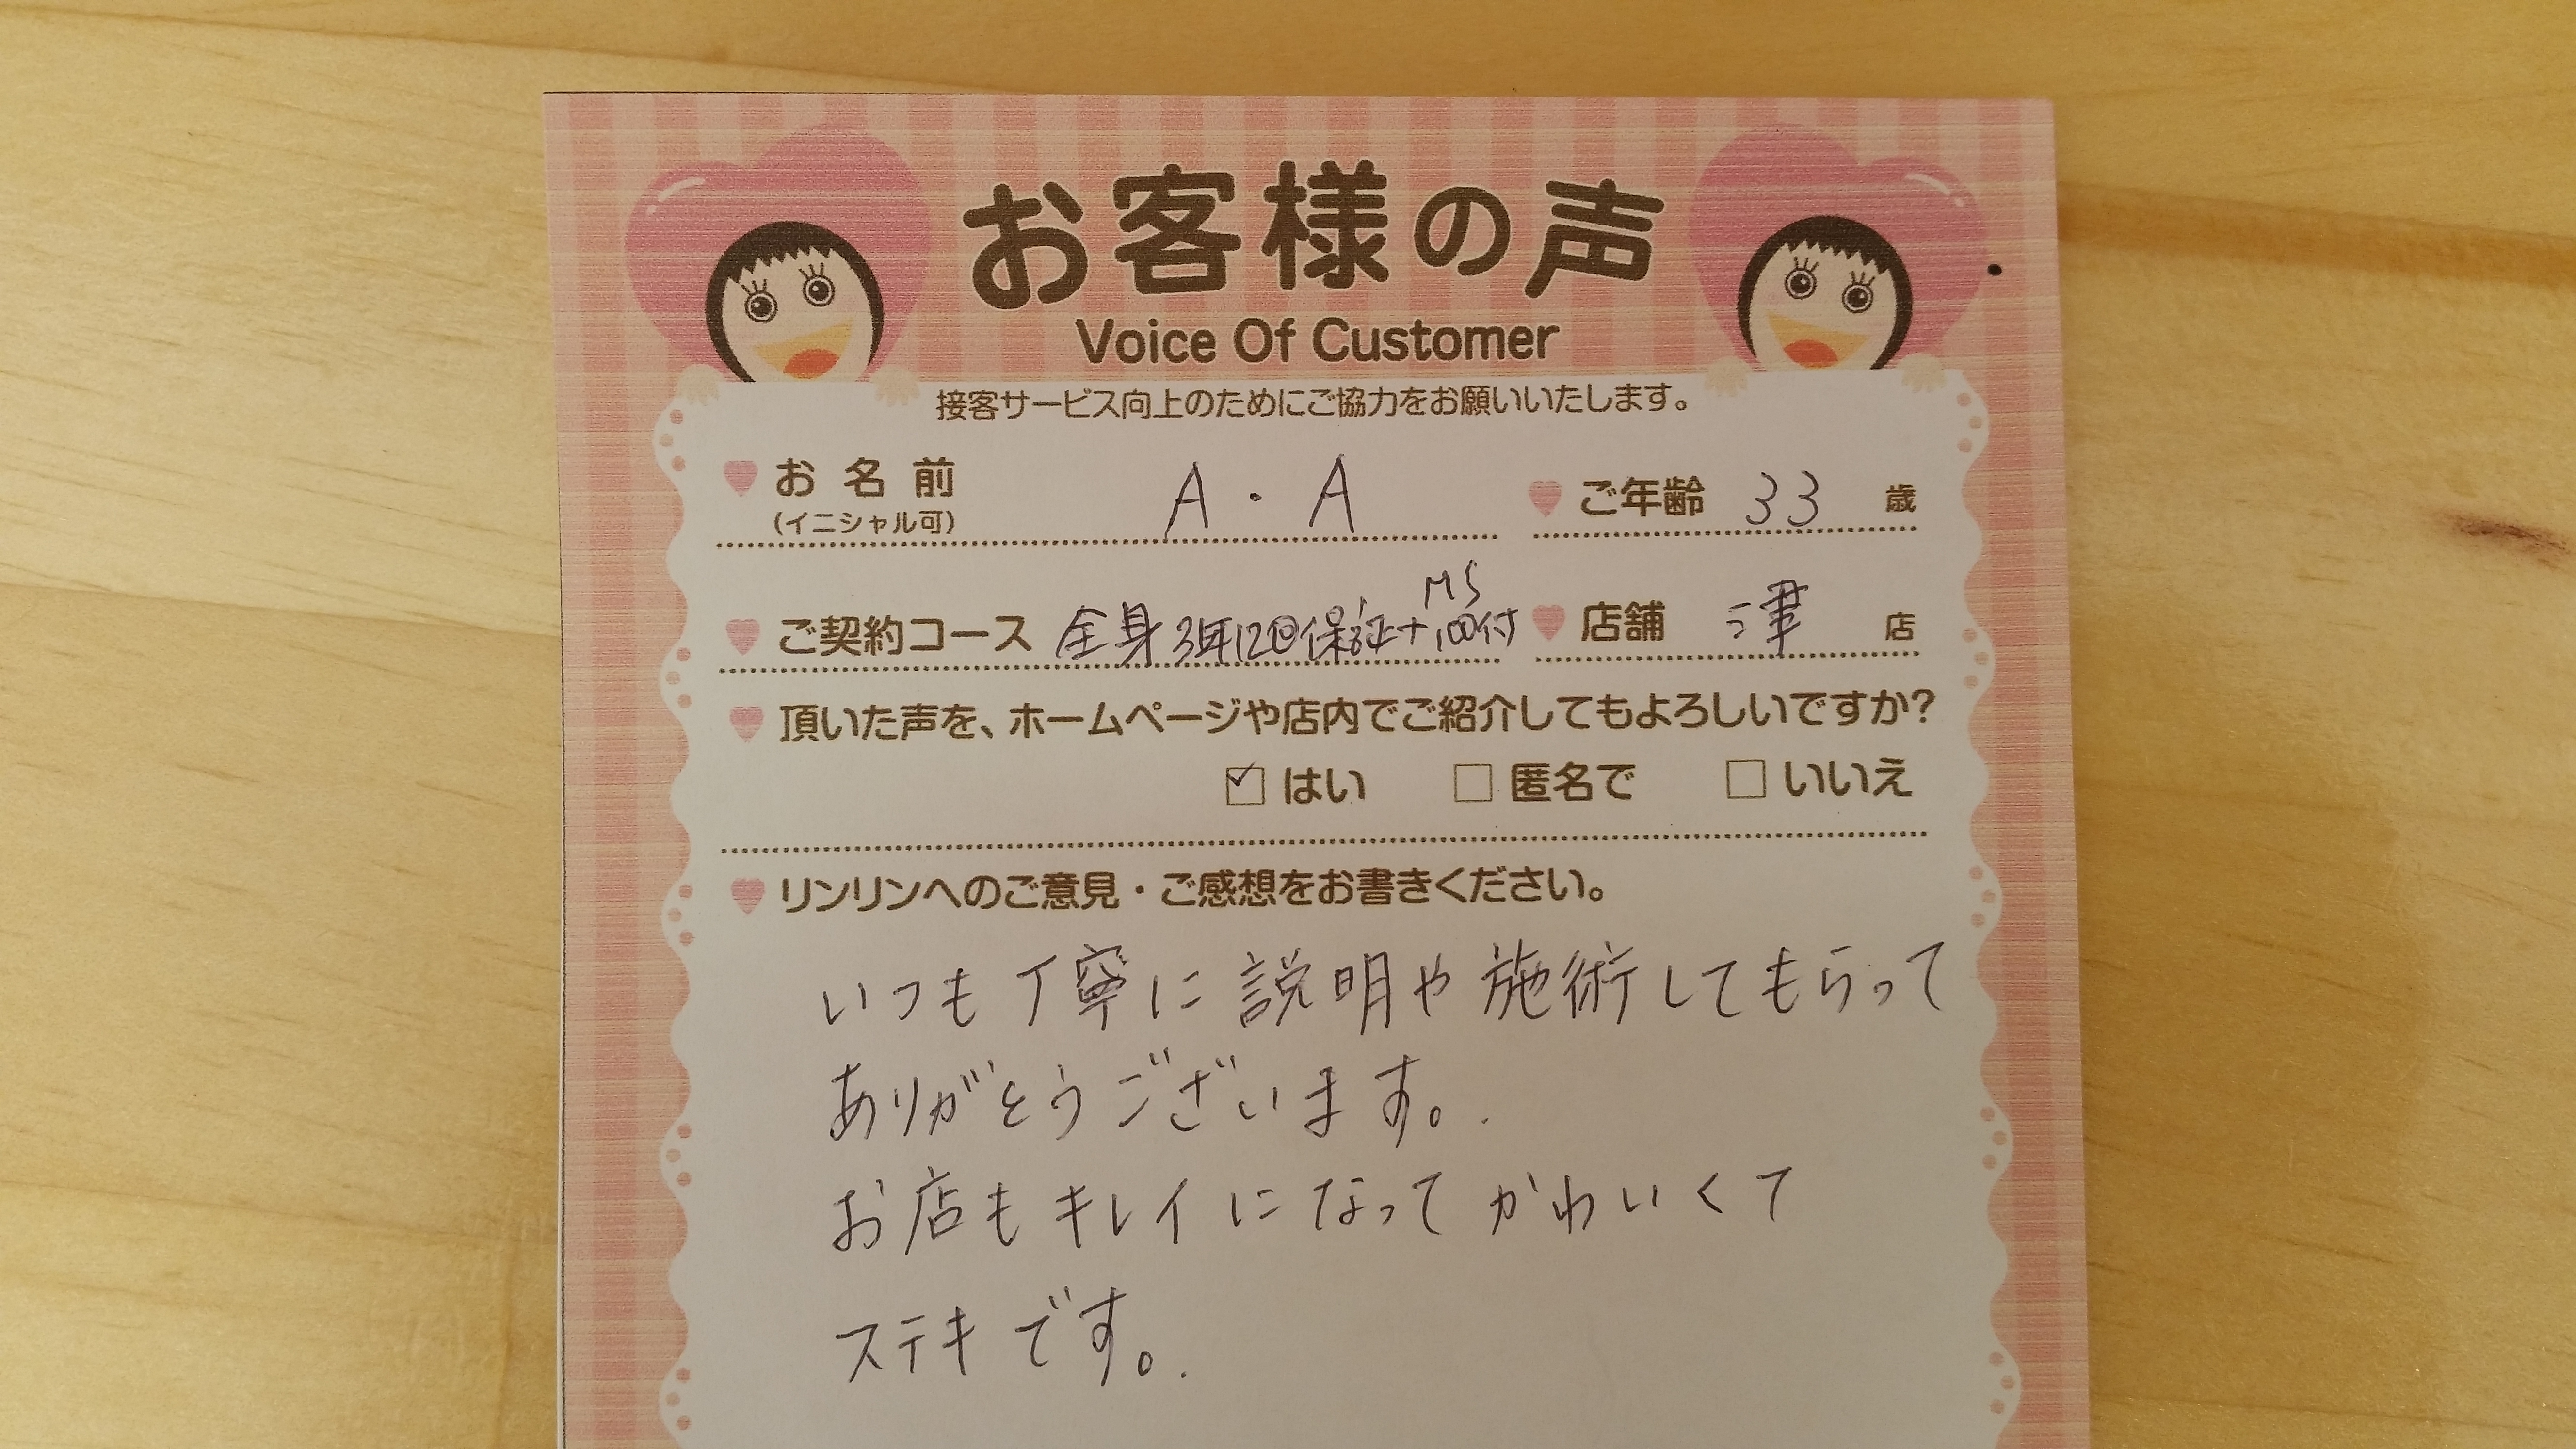 お客様の声
Voice Of Customer
接客サービス向上のためにご協力をお願いいたします。
お名前 A・A ご年齢 33 歳
(イニシャル可)
MS
ご契約コース 全身3年12回保証+100付 店舗 津 店
頂いた声を、ホームページや店内でご紹介してもよろしいですか?
はい 匿名で いいえ
リンリンへのご意見・ご感想をお書きください。
いつも丁寧に説明や施術してもらって
ありがとうございます。
お店もキレイになってかわいくて
ステキです。